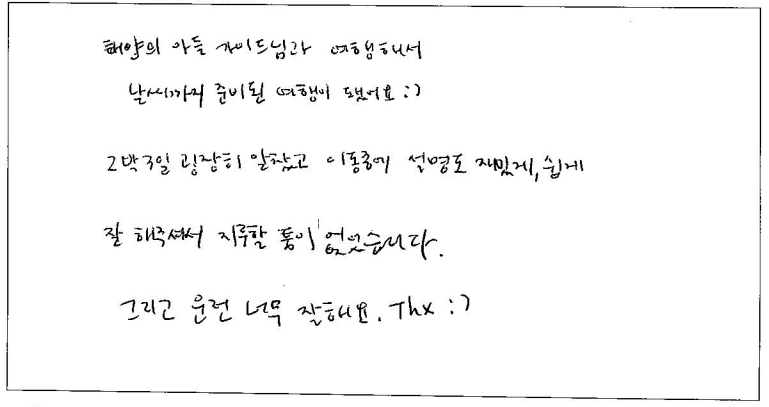 태양의 아들 가이드님과 여행해서
날씨까지 준비된 여행이 됐어요 :)
2박3일 굉장히 알찼고 이동중에 설명도 재밌게, 쉽게
잘 해주셔서 지루할 틈이 없었습니다.
그리고 운전 너무 잘해요. Thx :)